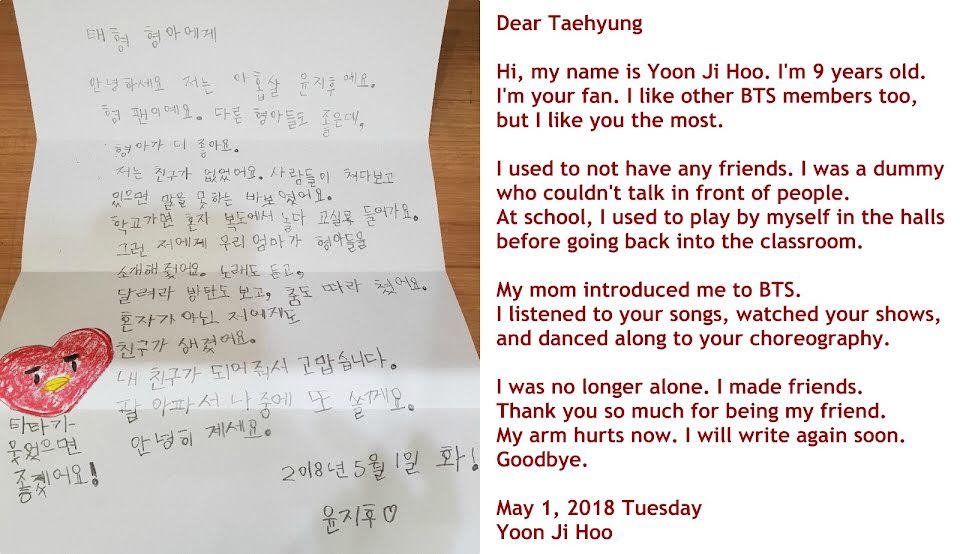 태형 형아에게
안녕하세요 저는 아홉살 윤지후예요.
형 팬이예요. 다른 형아들도 좋은데,
형아가 더 좋아요.
저는 친구가 없었어요. 사람들이 쳐다보고
있으면 말을 못하는 바보였어요.
학교가면 혼자 복도에서 놀다 교실로 들어가요.
그런 저에게 우리 엄마가 형아들을
소개해 줬어요. 노래도 듣고,
달려라 방탄도 보고, 춤도 따라 췄어요.
혼자가 아닌 저에게도
친구가 생겼어요.
내 친구가 되어줘서 고맙습니다.
팔 아파서 나중에 또 쓸께요.
안녕히 계세요.
2018년 5월 1일 화!
윤지후♡
타타가
웃었으면
좋겠어요!
Dear Taehyung
Hi, my name is Yoon Ji Hoo. I'm 9 years old.
I'm your fan. I like other BTS members too,
but I like you the most.
I used to not have any friends. I was a dummy
who couldn't talk in front of people.
At school, I used to play by myself in the halls
before going back into the classroom.
My mom introduced me to BTS.
I listened to your songs, watched your shows,
and danced along to your choreography.
I was no longer alone. I made friends.
Thank you so much for being my friend.
My arm hurts now. I will write again soon.
Goodbye.
May 1, 2018 Tuesday
Yoon Ji Hoo